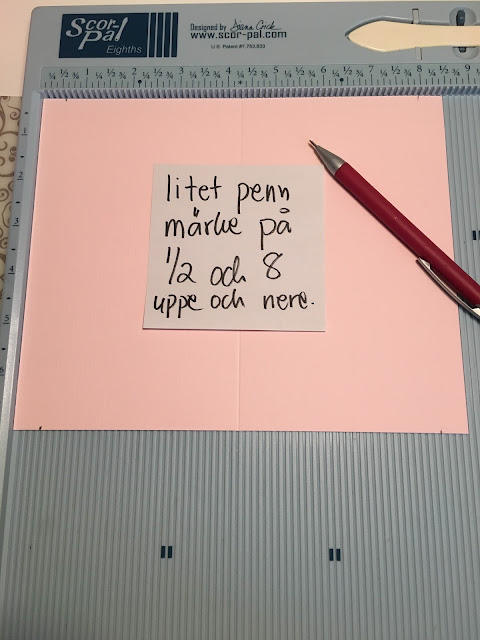 Scor-
Pal
Eighths
Designed by
www.scor-pal.com
U.S. Patent #7,753,833
¼ ½ ¾ 1 ¼ ½ ¾ 2 ¼ ½ ¾ 3 ¼ ½ ¾ 4 ¼ ½ ¾ 5 ¼ ½ ¾ 6 ¼ ½ ¾ 7 ¼ ½ ¾ 8 ¼ ½ ¾ 9
1
2
3
4
5
litet penn
märke på
1/2 och 8
uppe och nere.